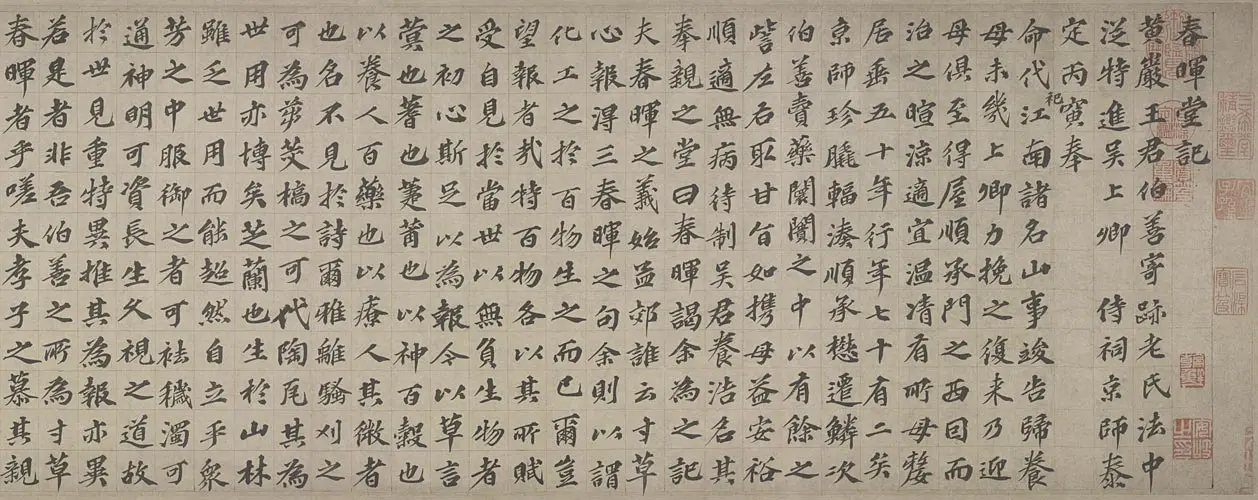 春暉堂記
黄巖王君伯善寄跡老氏法中
從特進吴上卿侍祠京師泰
定丙寅奉
命代祀江南諸名山事竣告歸養
母未幾上卿力挽之復来乃迎
母俱至得屋順承門之西囙而
治之暄涼適宜温凊有所母嫠
居垂五十年行年七十有二矣
京師珍膬輻湊順承懋遷鱗次
伯善賣藥闤闠之中以有餘之
訾左右取甘旨如携母益安裕
順適無病待制吴君養浩名其
奉親之堂曰春暉謁余為之記
夫春暉之義始孟郊誰云寸草
心報得三春暉之句余則以謂
化工之於百物生之而已爾豈
望報者㢤特百物各以其所賦
受自見於當世以無負生物者
之初心斯足以為報今以草言
蓂也蓍也萐莆也以神百穀也
以養人百藥也以療人其微者
也名不見於詩爾雅離騷刈之
可為茭槁之可代陶瓦其為
世用亦博矣芝蘭也生於山林
雖乏世用而能超然自立乎衆
芳之中服御之者可祛穢濁可
通神明可資長生久視之道故
於世見重特異推其為報亦異
若是者非吾伯善之所為寸草
春暉者乎嗟夫孝子之慕其親